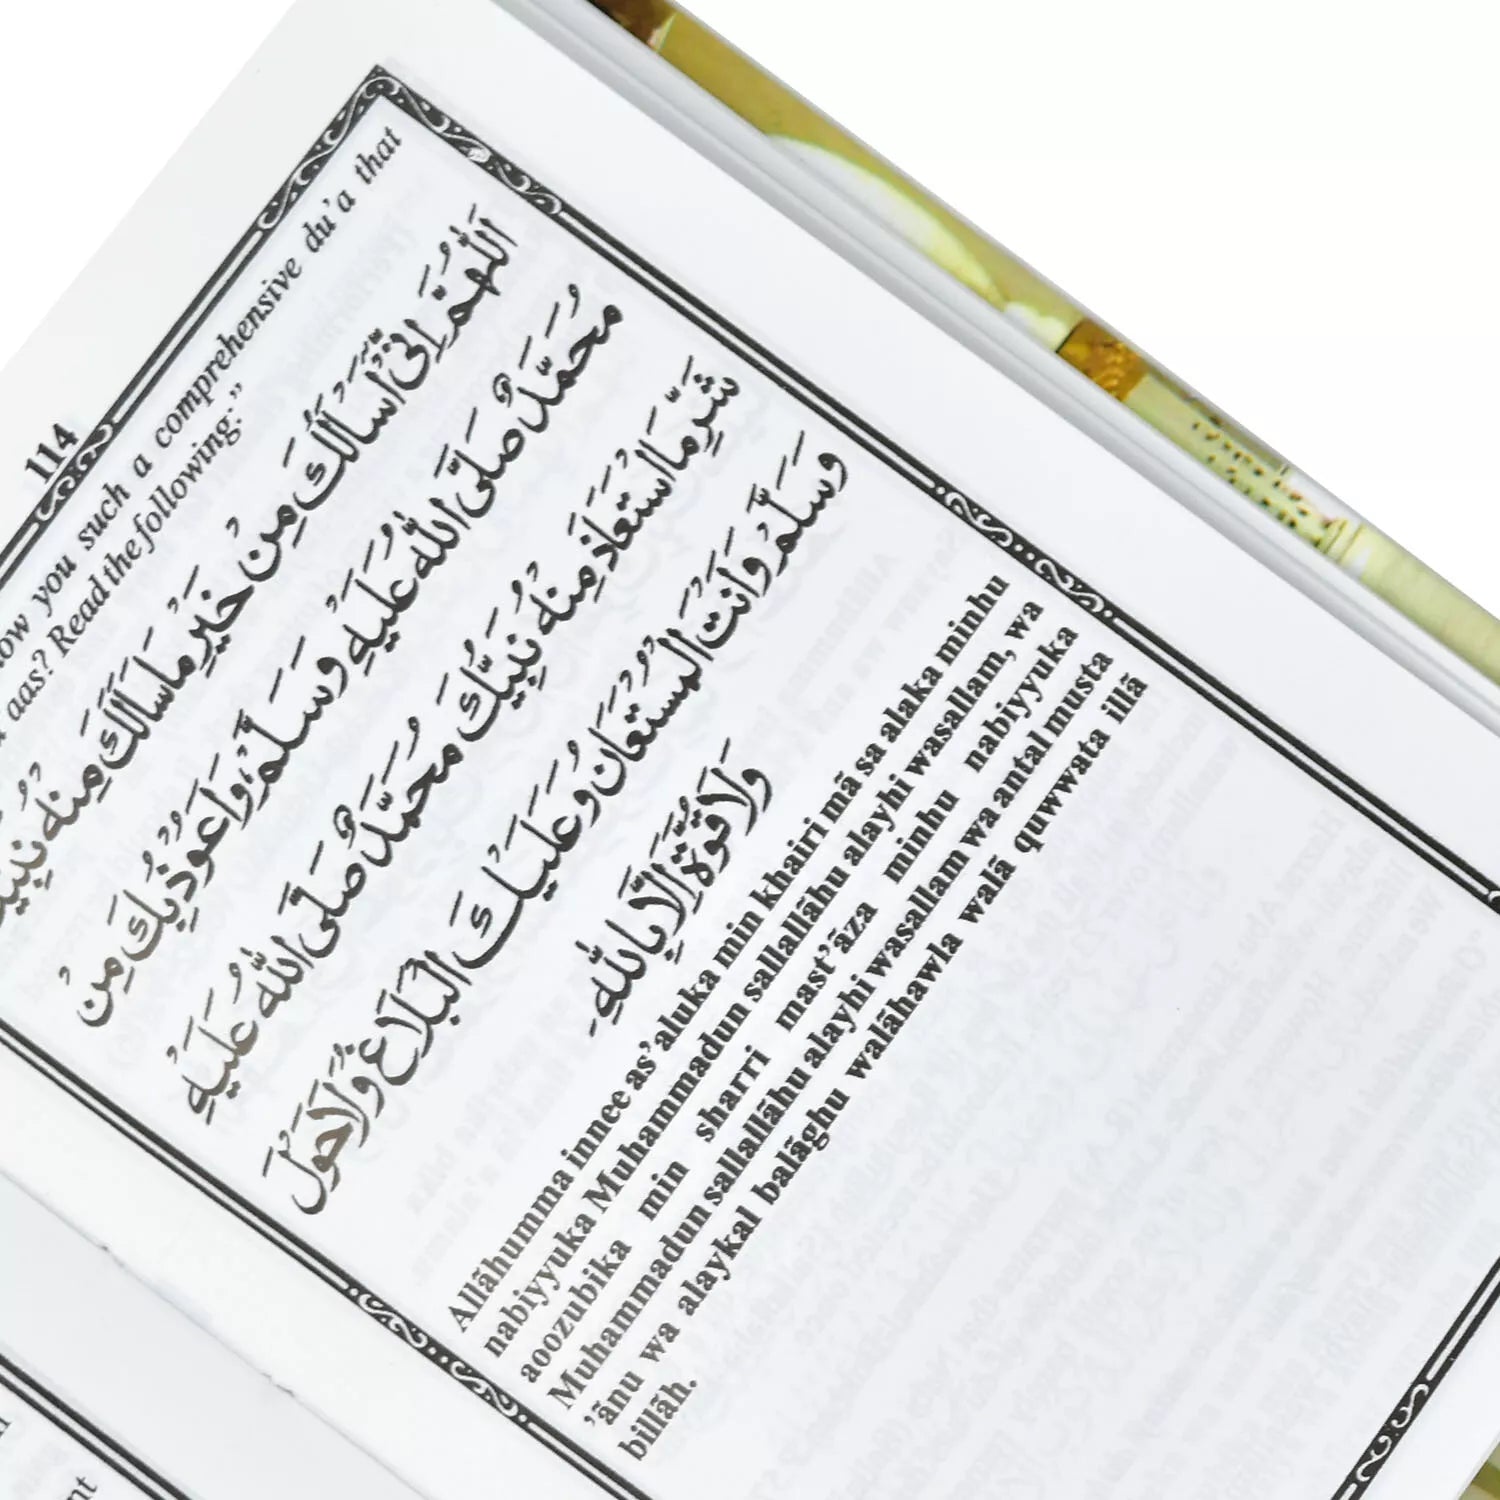 114
you such a comprehensive du'a that
aas? Read the following:”
اَللّٰهُمَّ اِنِّیْ اَسْاَلُكَ مِنْ خَیْرِ مَا سَاَلَكَ مِنْهُ
مُحَمَّدٌ صَلَّی اللّٰهُ عَلَیْهِ وَسَلَّمْ وَاَعُوْذُبِكَ مِنْ
شَرِّ مَا اسْتَعَاذَ مِنْهُ نَبِیُّكَ مُحَمَّدٌ صَلَّی اللّٰهُ عَلَیْهِ
وَسَلَّمْ وَاَنْتَ الْمُسْتَعَانُ وَعَلَیْكَ الْبَلَاغُ وَلَا حَوْلَ
وَلَا قُوَّةَ اِلَّا بِاللّٰهِ
Allāhumma innee as’aluka min khairi mā sa alaka minhu
nabiyyuka Muhammadun sallallāhu alayhi wasallam, wa
aoozubika min sharri mast’āza minhu nabiyyuka
Muhammadun sallallāhu alayhi wasallam wa antal musta
’ānu wa alaykal balāghu walāhawla walā quwwata illā
billāh.